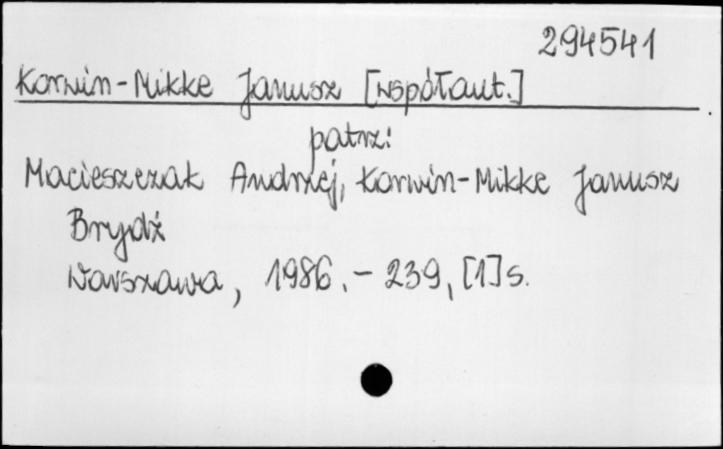 294541
Korwin-Mikke Janusz [współaut.]
patrz:
Macieszczak Andrzej, Korwin-Mikke Janusz
Brydż
Warszawa, 1986.- 239, [1] s.